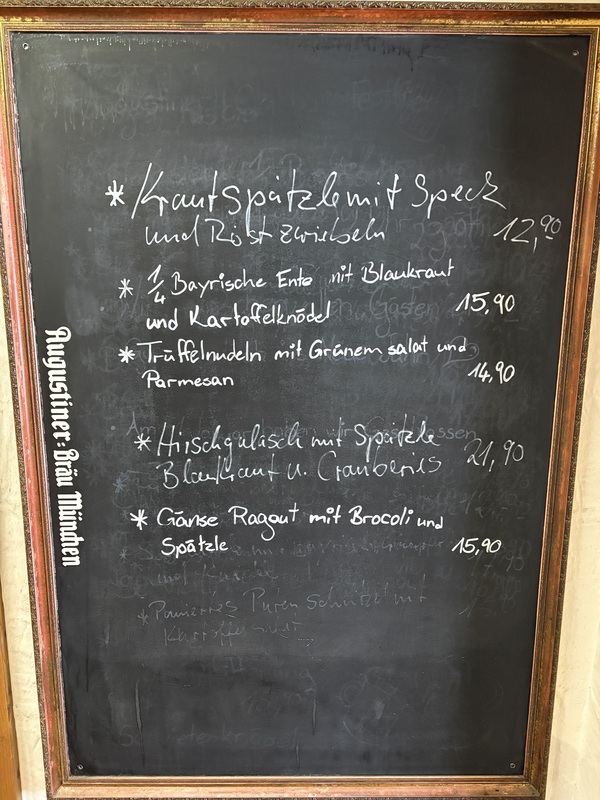 * Krautspätzle mit Speck
und Röstzwiebeln 12,90
* 1/4 Bayrische Ente mit Blaukraut
und Kartoffelknödel 15,90
* Trüffelnudeln mit Grünem salat und
Parmesan 14,90
* Hirschgulasch mit Spätzle
Blaukraut u. Cranberies 21,90
* Gänse Ragout mit Brocoli und
Spätzle 15,90
* Paniertes Puten Schnitzel mit
Augustiner-Bräu München